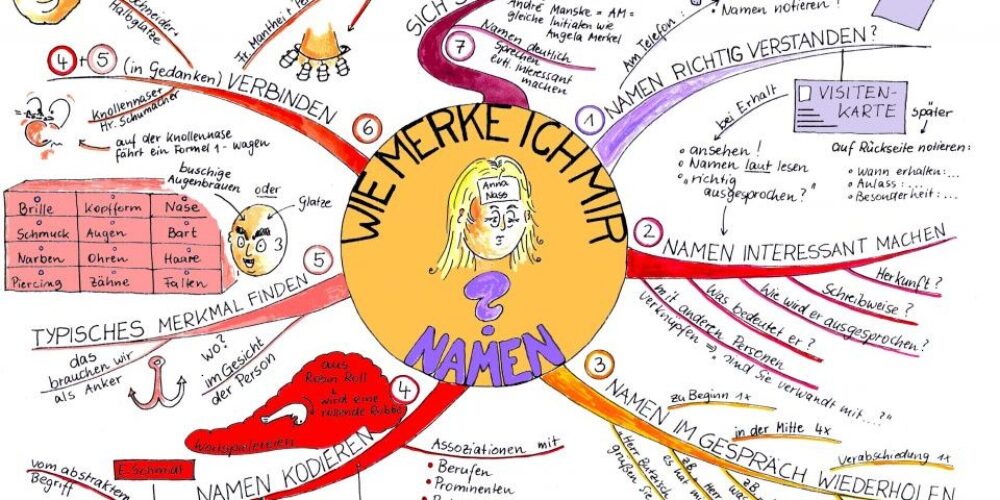 WIE MERKE ICH MIR
NAMEN
?
Anna
Nass
1
NAMEN RICHTIG VERSTANDEN?
Am Telefon:
• Namen notieren!
VISITEN-
KARTE
bei Erhalt
• ansehen!
• Namen laut lesen
• "richtig
ausgesprochen?"
später
auf Rückseite notieren:
• Wann erhalten:...
• Anlass:....
• Besonderheit:...
2
NAMEN INTERESSANT MACHEN
Herkunft?
Schreibweise?
Wie wird er ausgesprochen?
Was bedeutet er?
mit anderen Personen
verknüpfen ⇒ "sind Sie verwandt mit...?"
3
NAMEN IM GESPRÄCH WIEDERHOLEN
zu Beginn 1x
in der Mitte 4x
Verabschiedung 1x
"Herr Butzisch
grüßen S
zB.
es hat m
zB.
was
4
NAMEN KODIEREN
aus
Robin Roll
wird eine
rollende Robbe
Wortspielereien
E. Schmidt
vom abstraktem
Begriff
Assoziationen mit
• Berufen
• Prominenten
5
TYPISCHES MERKMAL FINDEN
das
brauchen wir
als Anker
wo?
im Gesicht
der Person
Brille Kopfform Nase
Schmuck Augen Bart
Narben Ohren Haare
Piercing Zähne Falten
buschige
Augenbrauen
oder
Glatze
6
4 + 5 (in Gedanken) VERBINDEN
Schneider
Halbglatze
Fr. Mantheit
Knollennaser
Hr. Schumacher
auf der Knollennase
fährt ein Formel 1-wagen
7
SICH S
André Manske = AM =
gleiche Initialen wie
Angela Merkel
Namen deutlich
sprechen
evtl. interessant
machen